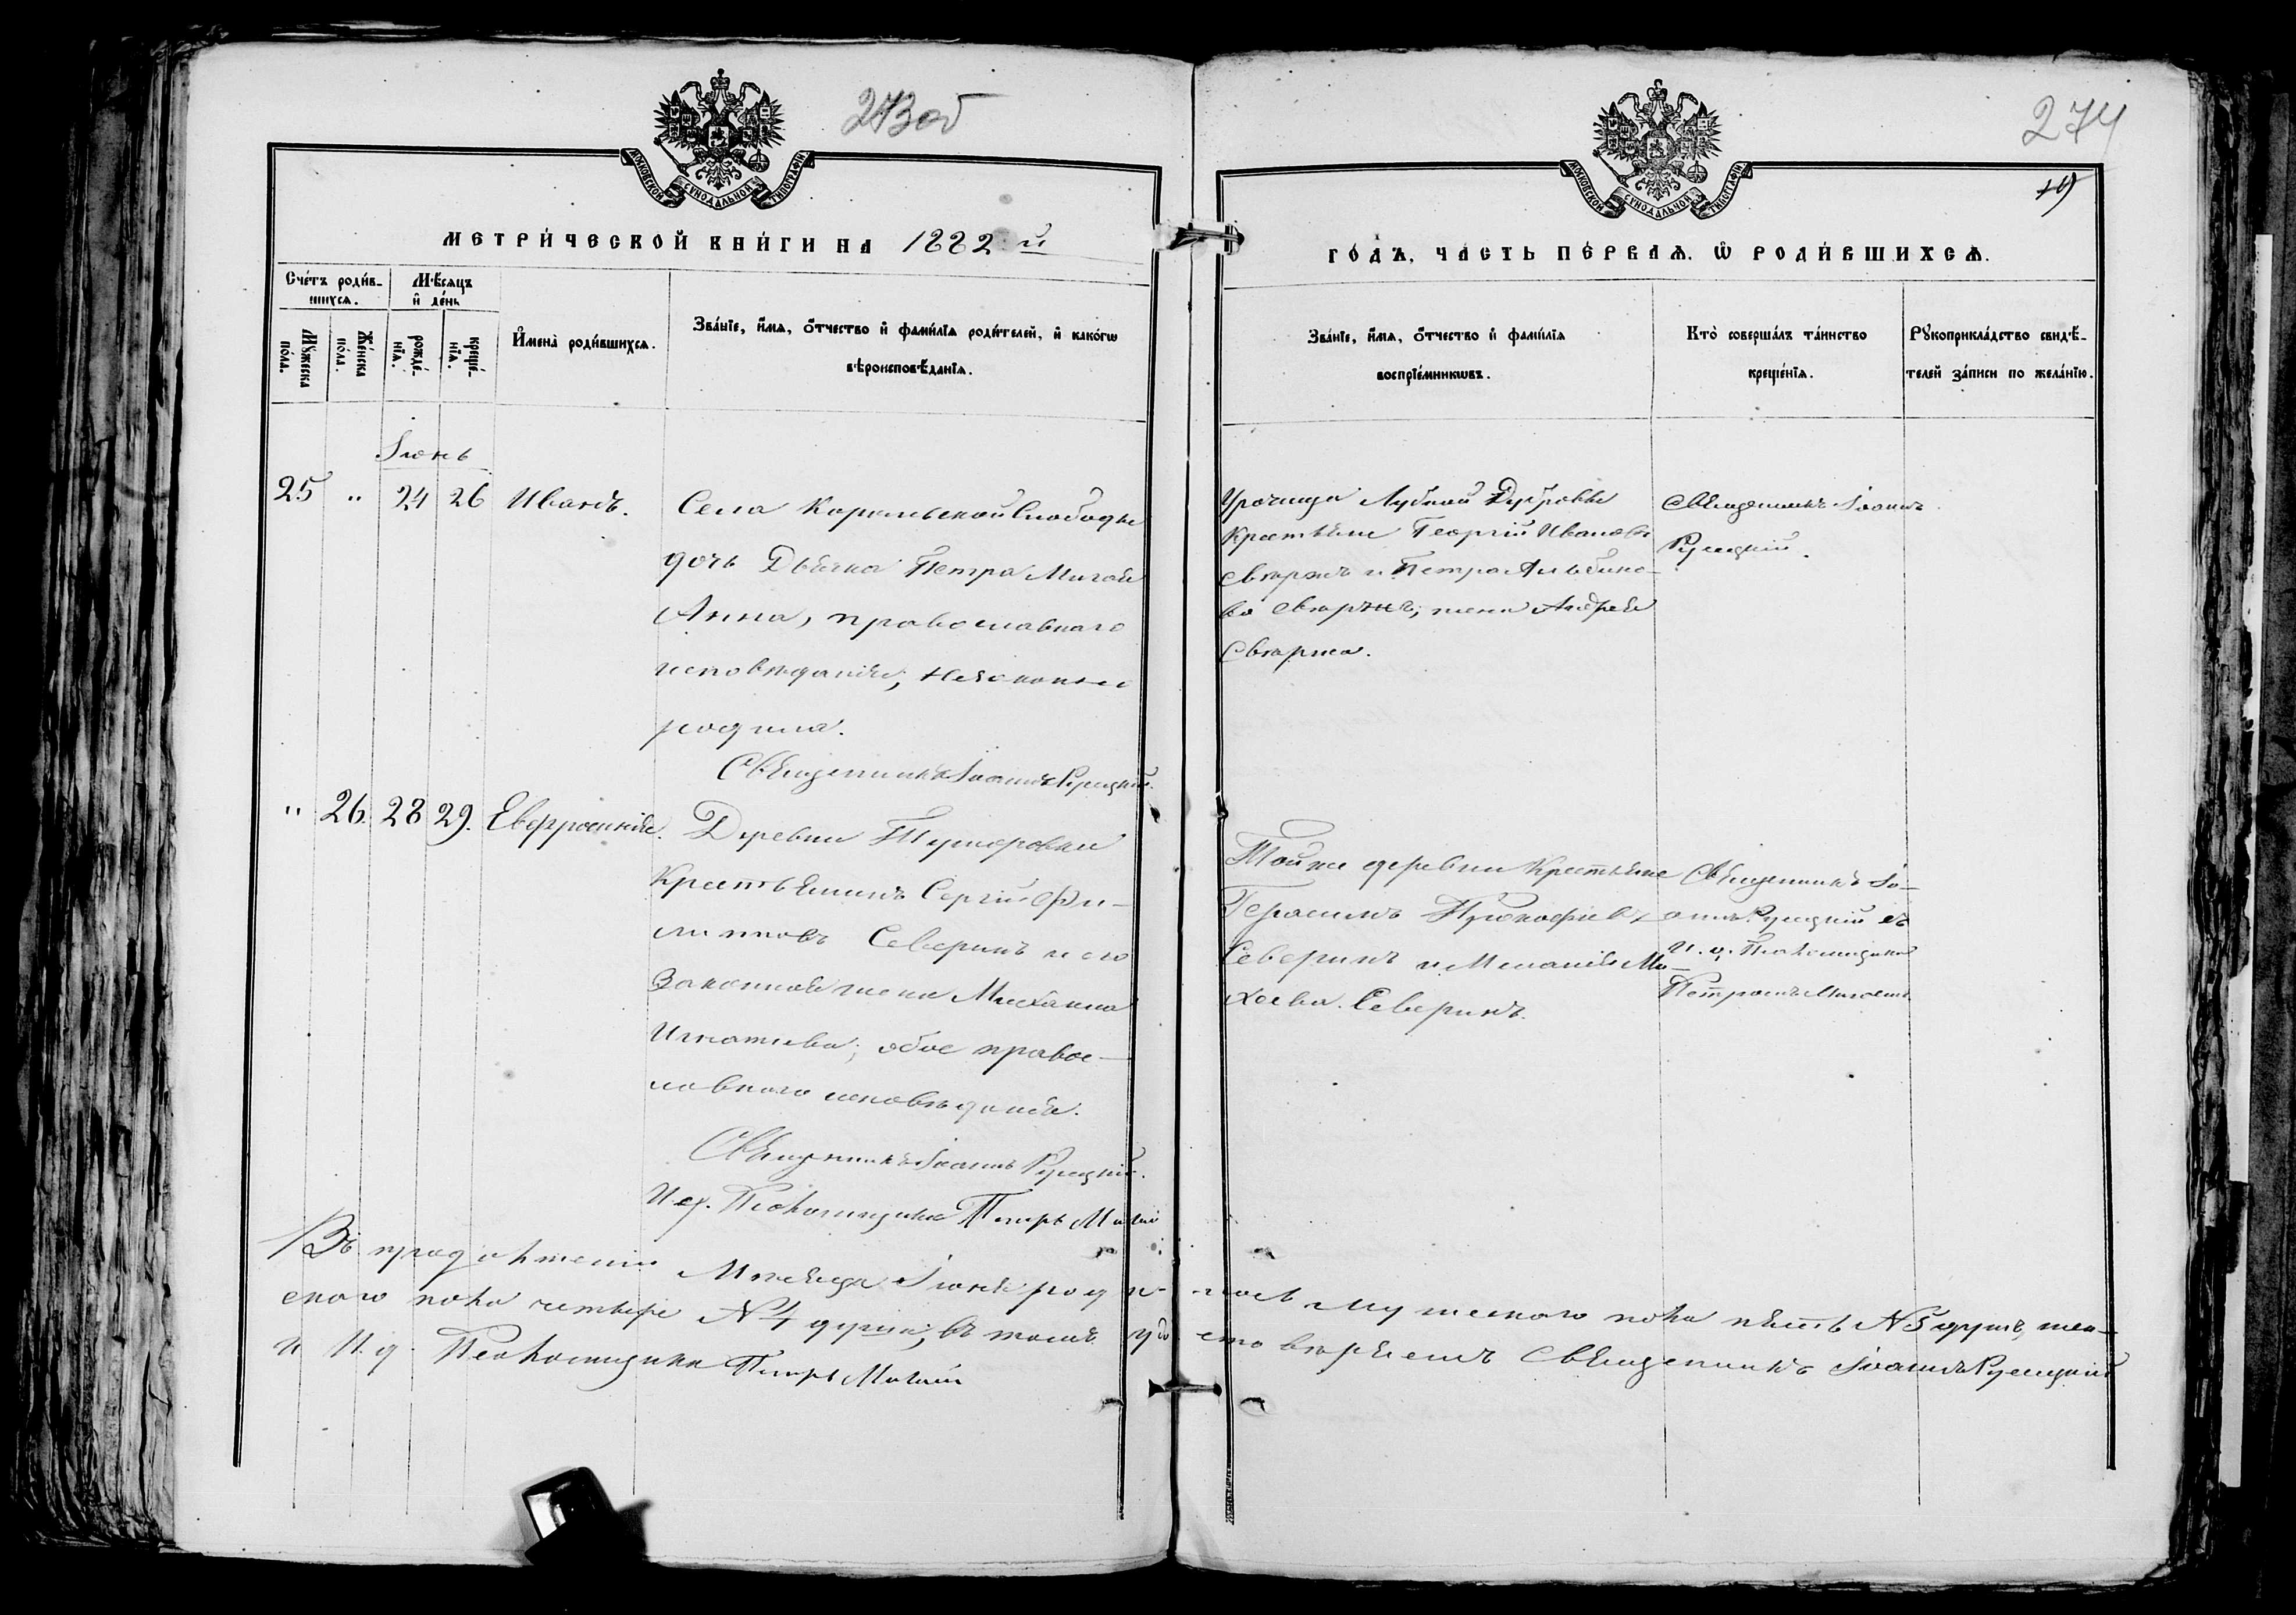 273об
274
19
МОСКОВСКОЙ СѴНОДАЛЬНОЙ ТИПОГРАФІИ
МОСКОВСКОЙ СѴНОДАЛЬНОЙ ТИПОГРАФІИ
МЕТРИ́ЧЕСКОЙ КНИ́ГИ НА 1882 й
ГО́ДЪ, ЧА́СТЬ ПЕ́РВАѦ. Ѿ РОДИ́ВШИХСѦ.
Сче́тъ роди́в-
шихсѧ.
Мѣ́сѧцъ
и҆ де́нь
Мꙋ́жеска
по́ла.
Же́нска
по́ла.
рожде́-
нїѧ.
креще́-
нїѧ.
И҆мена̀ роди́вшихсѧ.
Зва́нїе, и҆́мѧ, ѻ҆́тчество и҆ фами́лїѧ роди́телей, и҆ како́гѡ
вѣроисповѣ́данїѧ.
Зва́нїе, и҆́мѧ, ѻ҆́тчество и҆ фами́лїѧ
воспрїе́мникѡвъ.
Кто̀ соверша́лъ та́инство
креще́нїѧ.
Рꙋкоприкла́дство свидѣ́-
телей за́писи по жела́нїю.
Іюнь
25 " 24 26 Иванъ.
Села Корельской Слободы
дочь Дьячка Петра Мигай
Анна, православнаго
исповѣданія, незаконно
родила.
Священникъ Іоаннъ Русецкій.
Урочища Дубровки
Крестьяне Георгій Ивановъ
и Петра
жена Андрея
Священникъ Іоаннъ
Русецкій.
" 26. 28 29. Евфросинія.
Деревни
Крестьянинъ Сергій Фи-
липповъ Северинъ и его
Законная жена
Игнатіева; обое право-
славнаго исповѣданія.
Священникъ Іоаннъ Русецкій.
И. д. Псаломщика Петръ Мигай
Той же деревни Крестьяне
Герасимъ Прокофіевъ
Северинъ и Меланія Ми-
хеева Северинъ.
Священникъ Іо-
аннъ Русецкій съ
И. д. Псаломщика
Петромъ Мигаемъ
Въ продолженіи Мѣсяца Іюня роди-лось мужескаго пола пять №5 душъ, жен-
скаго пола четыре №4 души, въ томъ удо-стовѣряемъ Священникъ Іоаннъ Русецкій
и И. д. Псаломщика Петръ Мигай